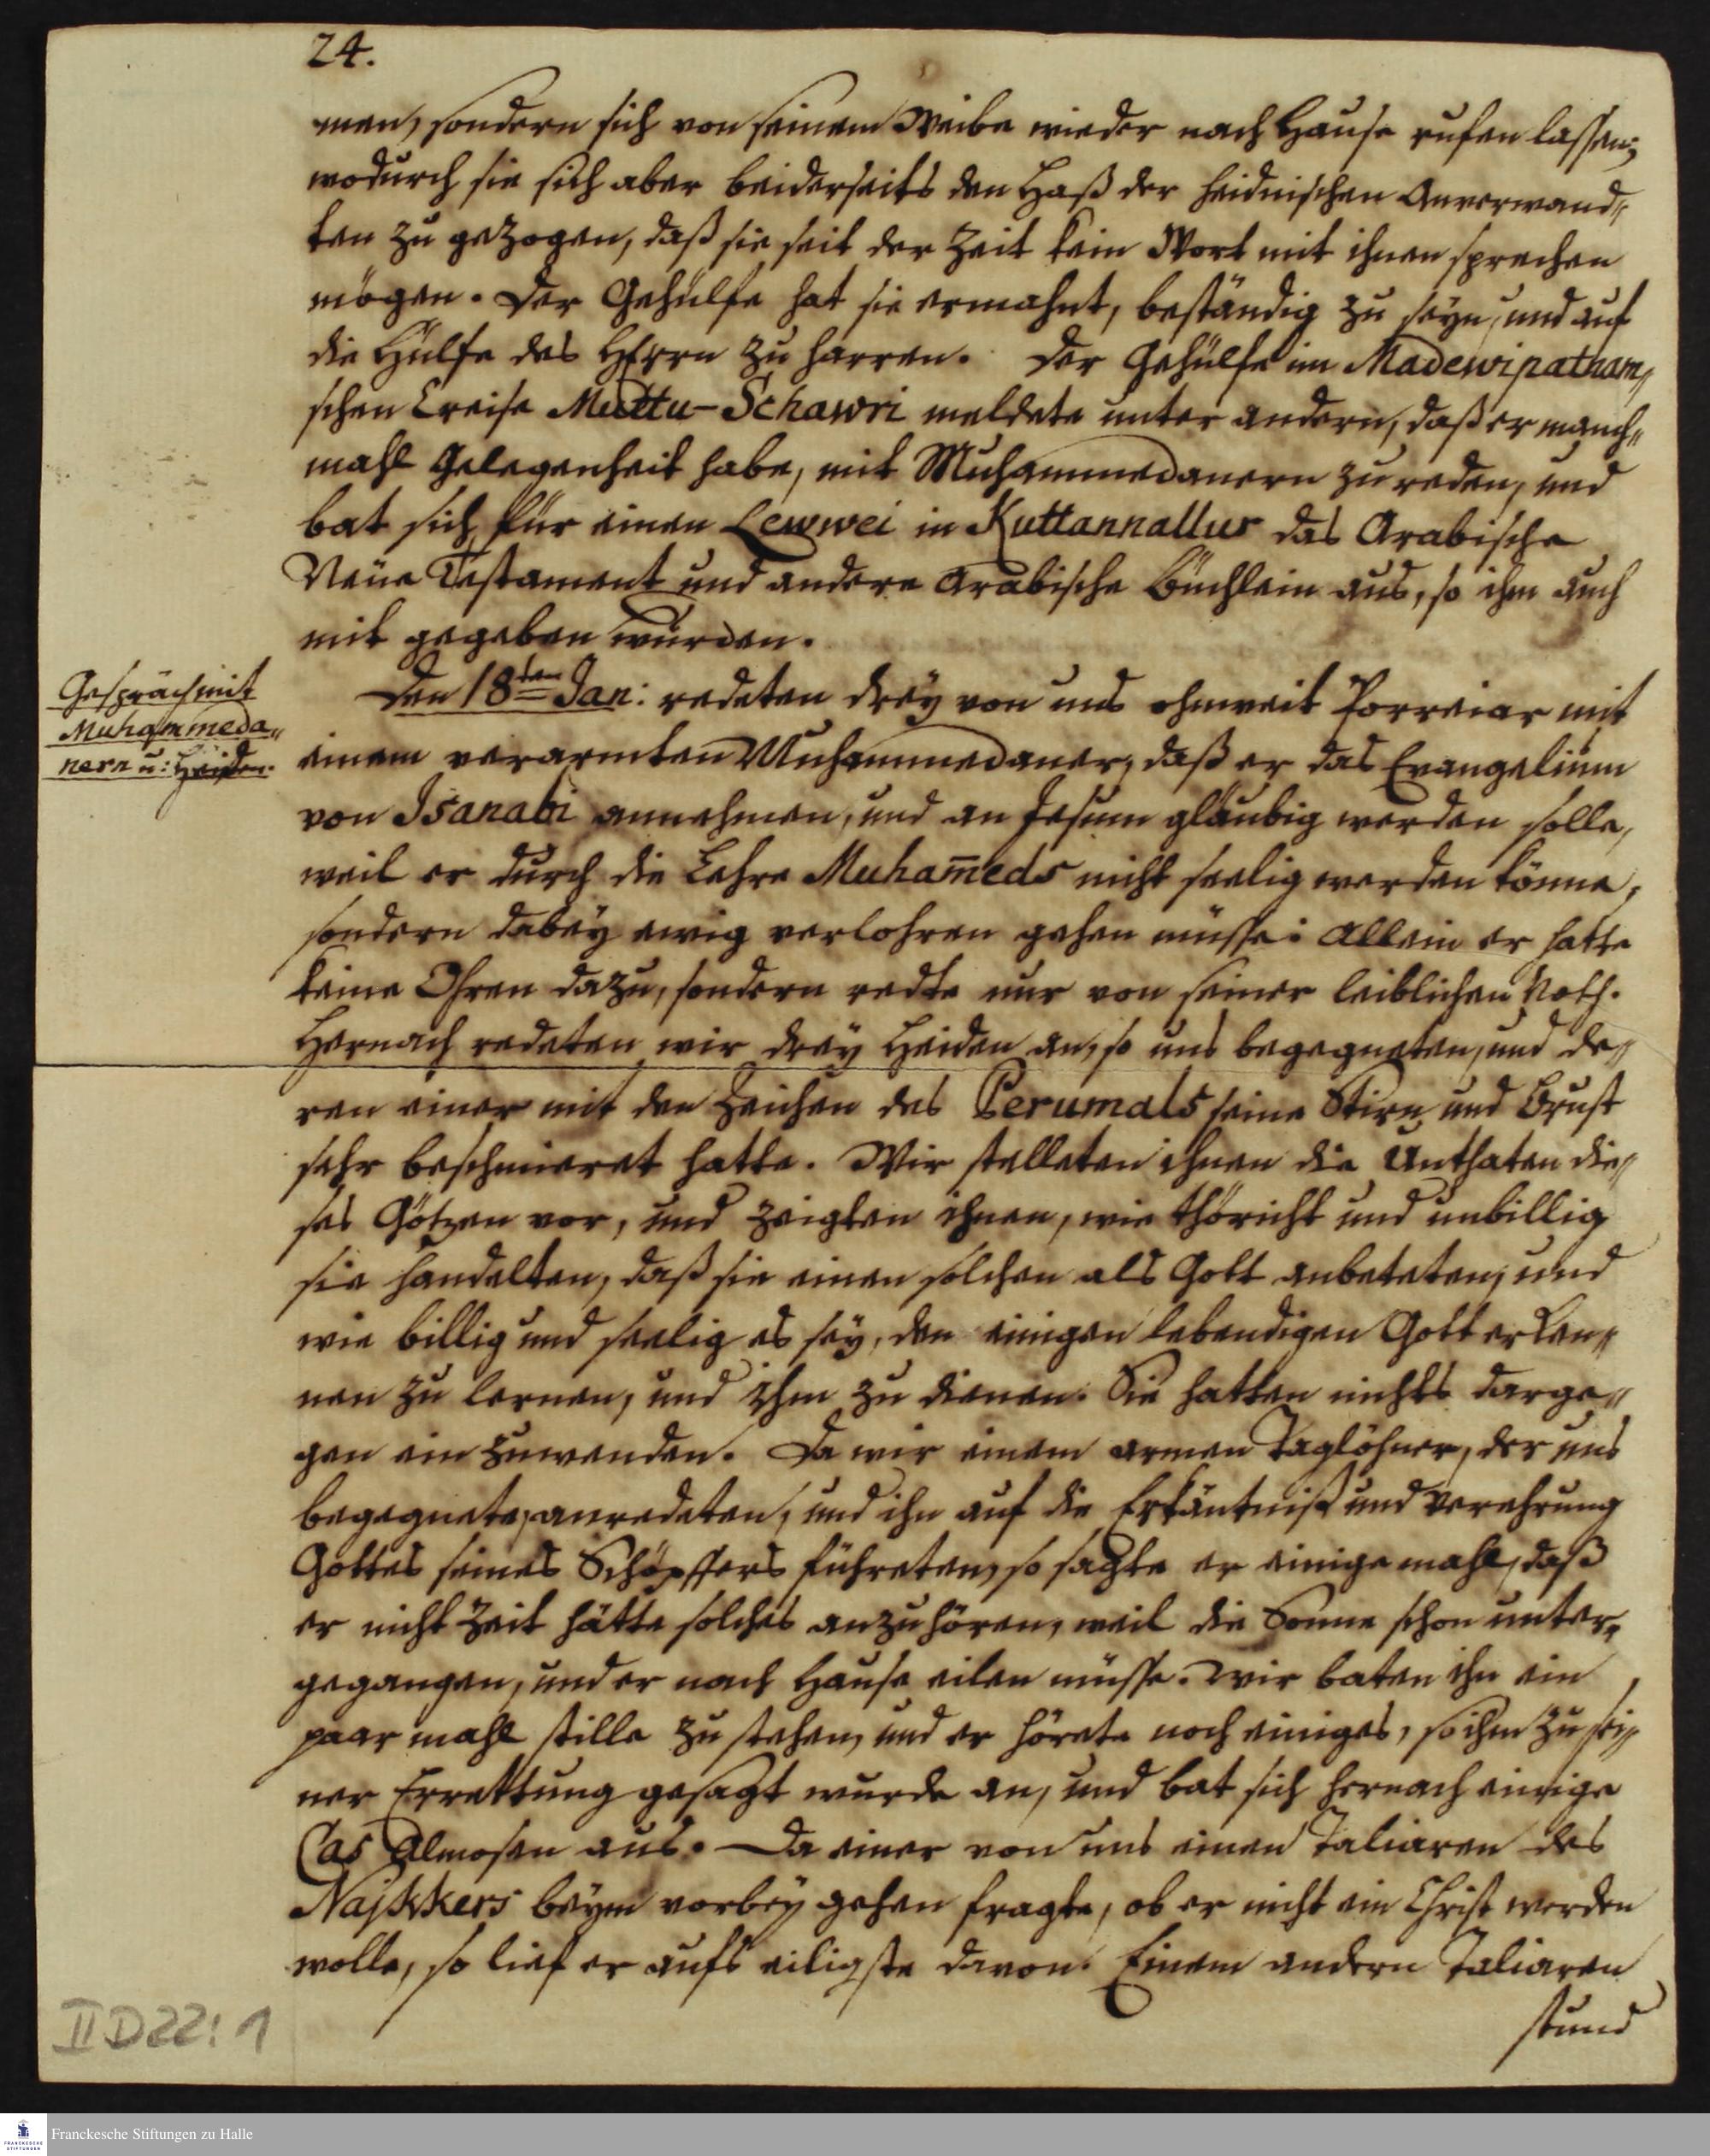 24.
men, sondern sich von seinem Weibe wieder nach Hause rufen lassen;
wodurch sie sich aber beiderseits den Haß der heidnischen Anverwand„
ten zu gezogen, daß sie seit der Zeit kein Wort mit ihnen sprechen
mögen. Der Gehülfe hat sie ermahnt, beständig zu seyn, und auf
die Hülfe des HErrn zu harren. Der Gehülfe im Madewipatnam„
schen Creise Muttu-Schawri meldete unter andern, daß er manch„
mahl Gelegenheit habe, mit Muhammedanern zu reden, und
bat sich für einen Lewwei in Kuttannallur das Arabische
Neüe Testament und andere Arabische Büchlein aus, so ihm auch
mit gegeben wurden.
Gespräch mit
Muhammeda„
nern u: Heiden.
Den 18ten Jan: redeten drey von uns ohnweit Porreiar mit
einem verarmten Muhammedaner, daß er das Evangelium
von Isanabi annehmen, und an Jesum gläubig werden solle,
weil er durch die Lehre Muham̅eds nicht seelig werden könne,
sondern dabey ewig verlohren gehen müsse: Allein er hatte
keine Ohren dazu, sondern redte nur von seiner leiblichen Noth.
Hernach redeten wir drey Heiden an, so uns begegneten, und de„
ren einer mit den Zeichen des Perumals seine Stirn und Brust
sehr beschmieret hatte. Wir stelleten ihnen die Unthaten die„
ses Götzen vor, und zeigten ihnen, wie thöricht und unbillig
sie handelten, daß sie einen solchen als Gott anbeteten, und
wie billig und seelig es sey, den einigen lebendigen Gott erken„
nen zu lernen, und Ihm zu dienen. Sie hatten nichts darge„
gen ein zuwenden. Da wir einem armen Taglöhner, der uns
begegnete, anredeten, und ihn auf die Erkäntniß und Verehrung
Gottes seines Schöpffers führeten, so sagte er einige mahl, daß
er nicht Zeit hätte solches anzuhören, weil die Sonne schon unter„
gegangen, und er nach Hause eilen müsse. Wir baten ihn ein
paar mahl stille zu stehen, und er hörete noch einiges, so ihm zu sei„
ner Errettung gesagt wurde an, und bat sich hernach einige
Cas Almosen aus. Da einer von uns einen Taliaren des
Najkkers beym vorbey gehen fragte, ob er nicht ein Christ werden
wolle, so lief er aufs eiligste davon. Einem andern Taliaren
stund
II D 22: 1
Franckesche Stiftungen zu Halle
FRANCKESCHE
STIFTUNGEN